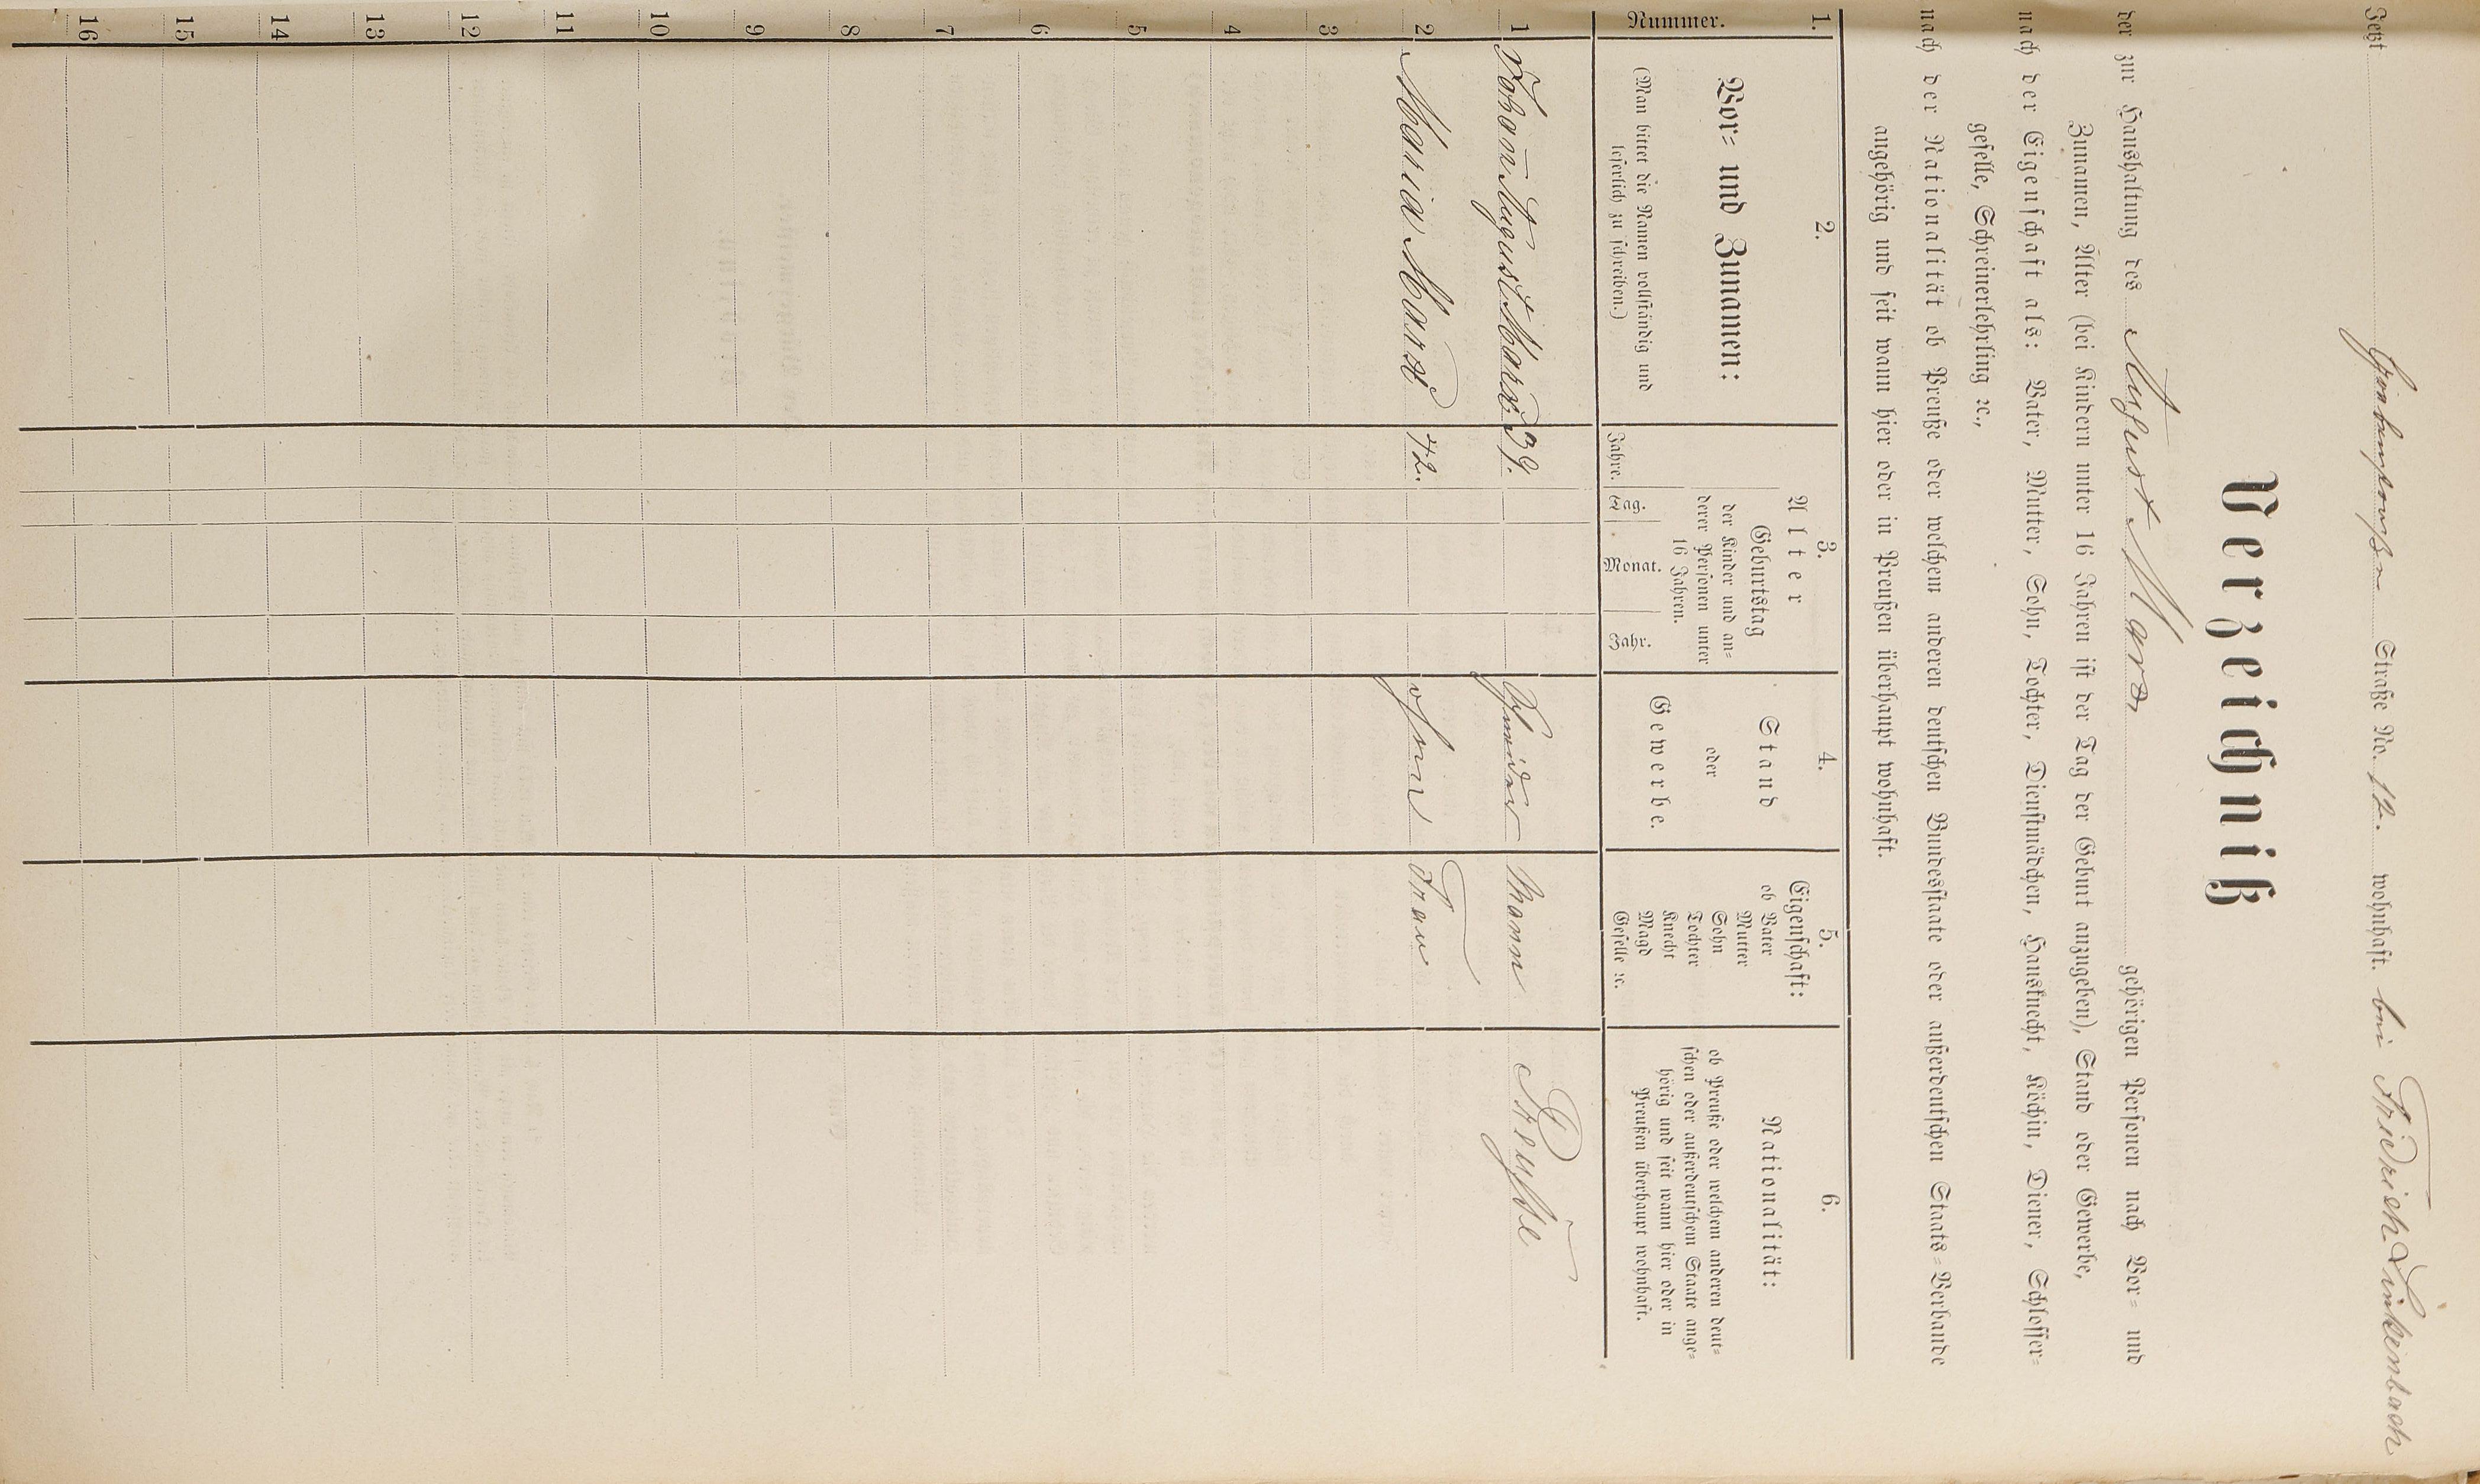 Jetzt Straße No. 12. wohnhaft. bei Friedrich Linkenbach
Verzeichniß
der zur Haushaltung des August Marx gehörigen Personen nach Vor- und
Zunamen, Alter (bei Kindern unter 16 Jahren ist der Tag der Geburt anzugeben), Stand oder Gewerbe,
nach der Eigenschaft als: Vater, Mutter, Sohn, Tochter, Dienstmädchen, Hausknecht, Köchin, Diener, Schlosser-
geselle, Schreinerlehrling ꝛc.,
nach der Nationalität ob Preuße oder welchem anderen deutschen Bundesstaate oder außerdeutschen Staats-Verbande
angehörig und seit wann hier oder in Preußen überhaupt wohnhaft.
1. 2. 3. 4. 5. 6.
Nummer.
Vor- und Zunamen:
(Man bittet die Namen vollständig und
leserlich zu schreiben.)
Alter
Geburtstag
der Kinder und an-
derer Personen unter
16 Jahren.
Jahre. Tag. Monat. Jahr.
Stand
oder
Gewerbe.
Eigenschaft:
ob Vater
Mutter
Sohn
Tochter
Knecht
Magd
Geselle ꝛc.
Nationalität:
ob Preuße oder welchem anderen deut-
schen oder außerdeutschem Staate ange-
hörig und seit wann hier oder in
Preußen überhaupt wohnhaft.
1 Johan̄ August Marx. 39. Schneider Mann Preuße
2 Maria Marx 42. ohne Frau
3
4
5
6
7
8
9
10
11
12
13
14
15
16